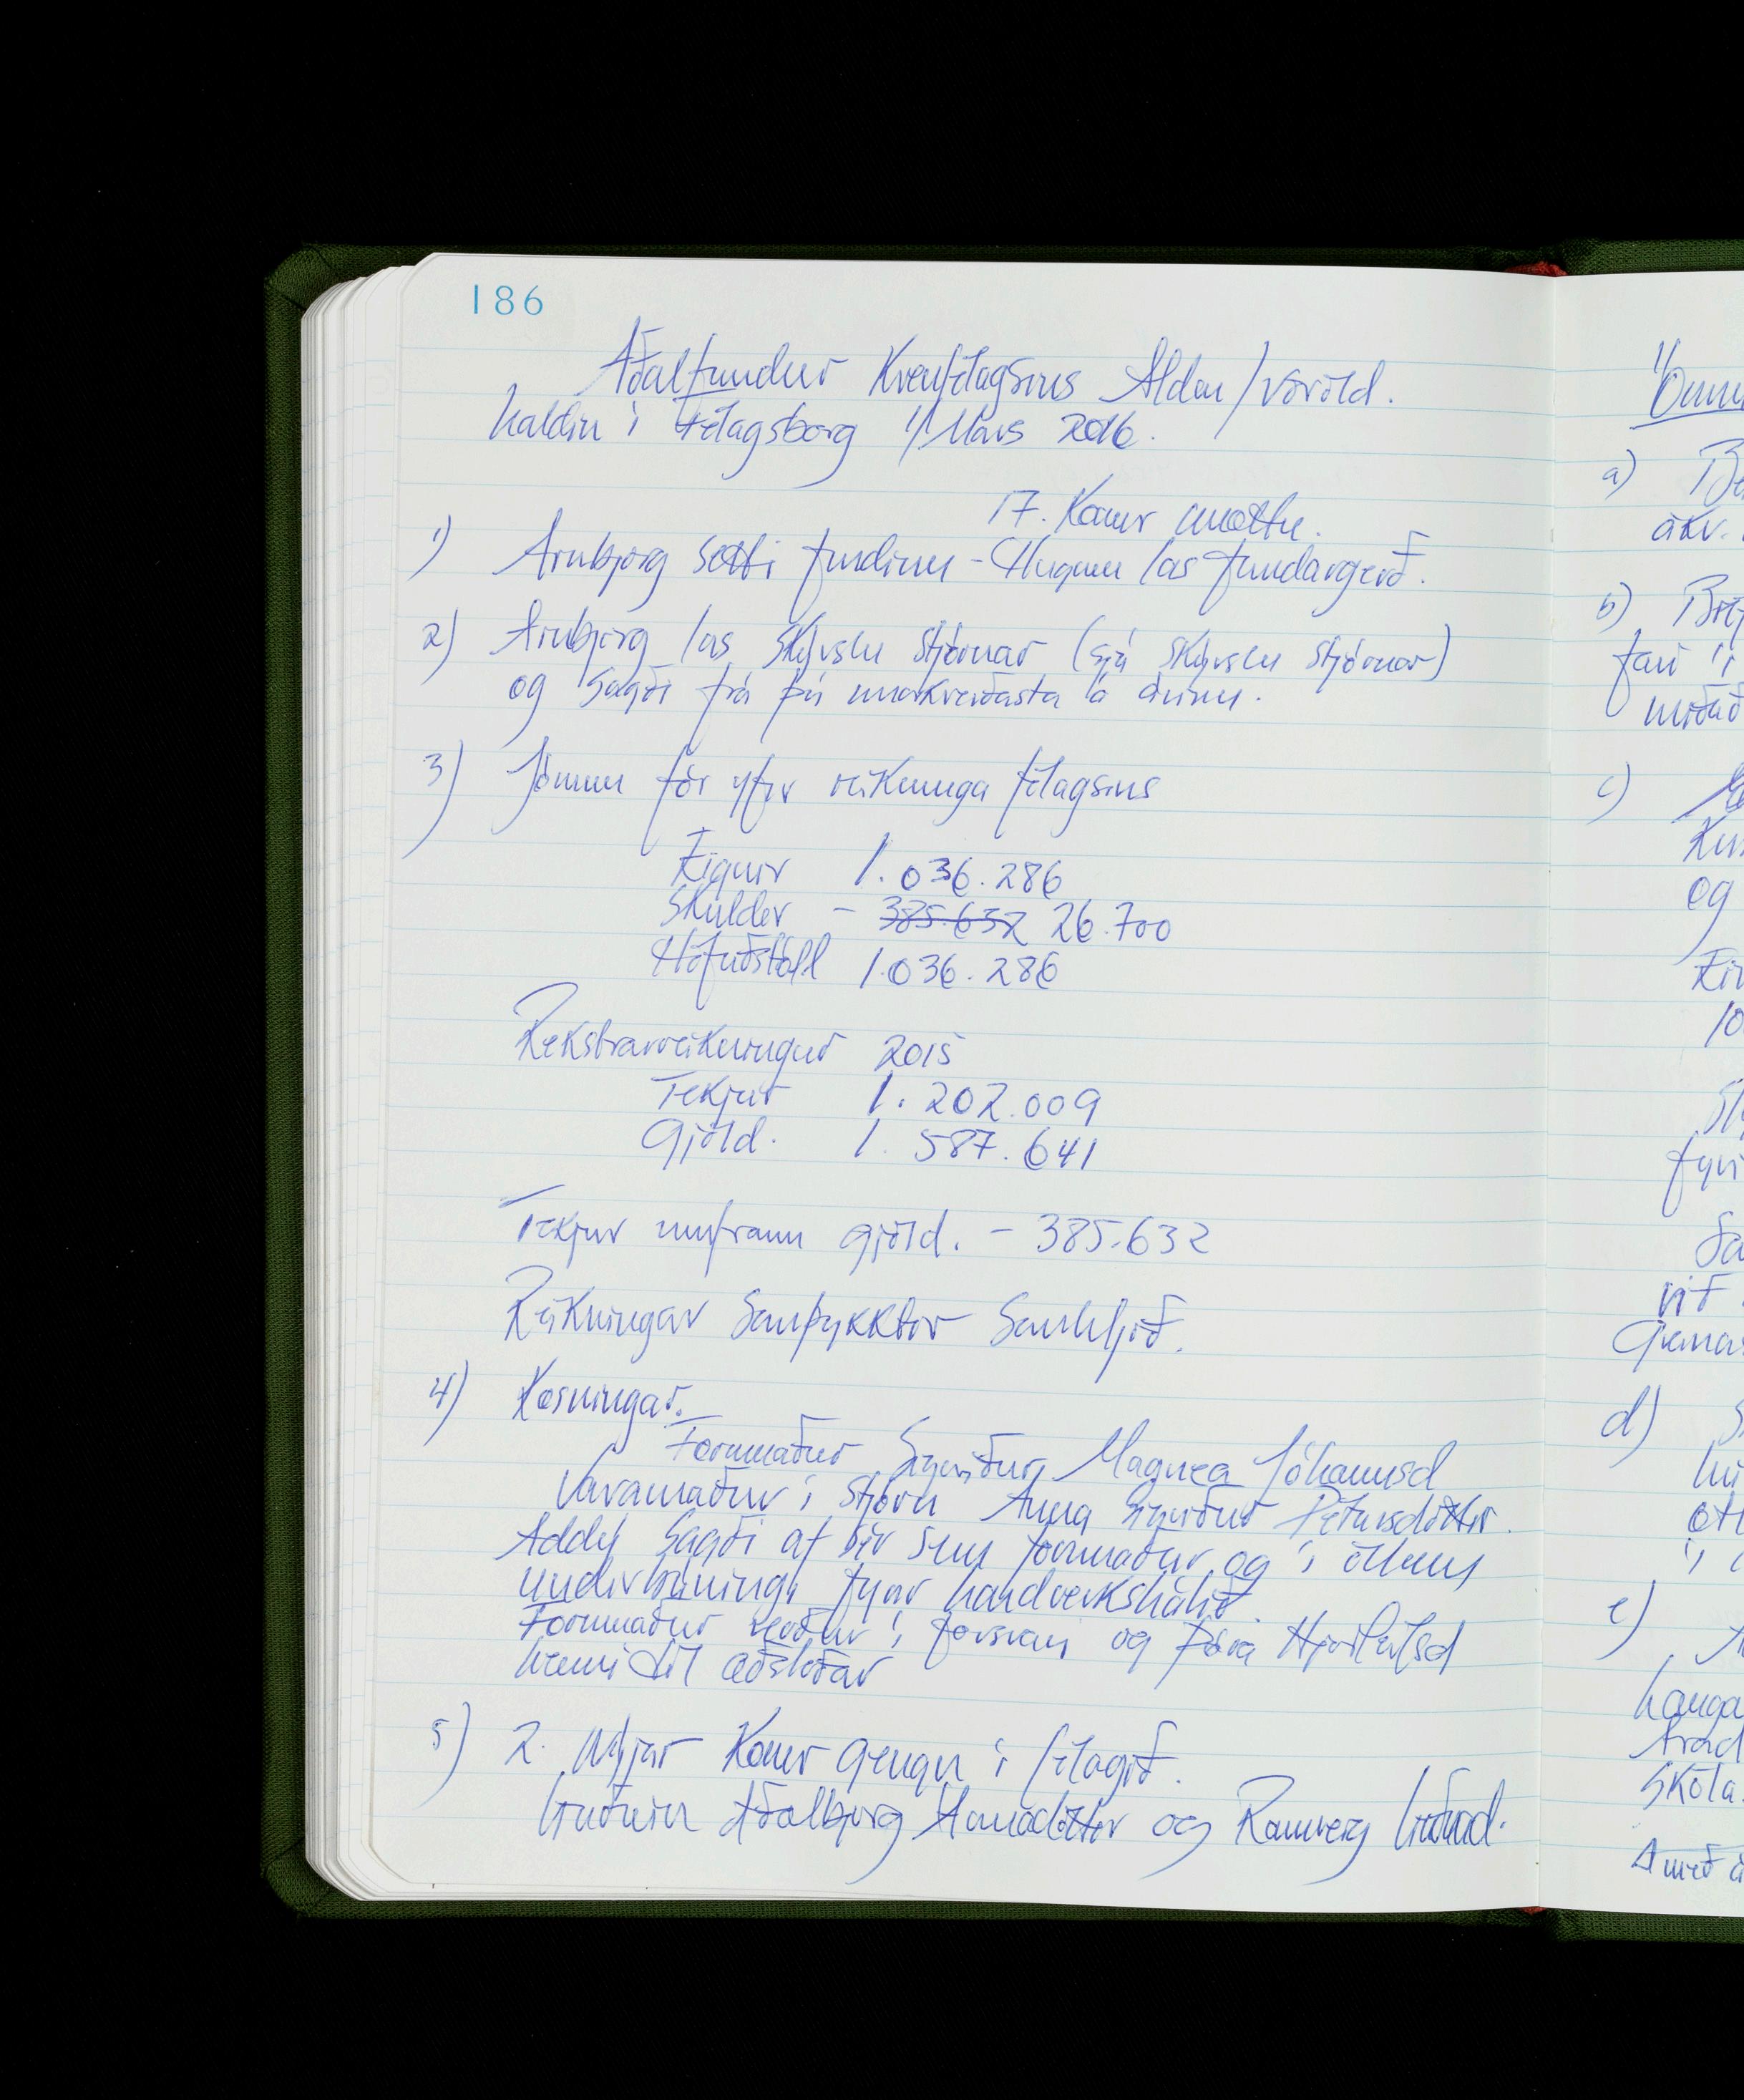 186
Aðalfundur Kvenfélagsins Aldan/Voröld.
haldin í Félagsborg 1/Mars 2016.
17. Konur mættu.
1) Arnbjörg setti fundinn - las fundargerð.
2) Arnbjörg las skýrslu stjórnar (sjá skýrslu stjórnar)
og sagði frá því markverðasta á árinu.
3) Jónína fór yfir reikninga félagsins
Eignir 1.036.286
Skuldir - 385.632 26.700
Höfuðstóll 1.036.286
Rekstrarreikningur 2015
Tekjur 1.202.009
Gjöld. 1.587.641
Tekjur umfram gjöld. - 385.632
Reikningar samþykktir samhljóð.
4) Kosningar.
Formaður Sigríður Magnea Jóhannsd
Varamaður í stjórn Anna Sigríður Pétursdóttir.
Addý sagði af sér sem formaður og í
undirbúningi fyrir handverkshátíð.
Formaður verður í forsvari og Þóra Hjörleifsd
henni til aðstoðar
5) 2. Nýjar Konur gengu í félagið.
Aðalbjörg og Rannveig
a)
ákv.
b)
c)
og
10
við
d)
e)
Skóla
með